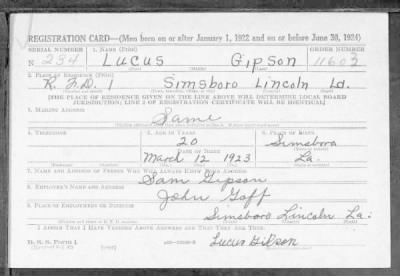 REGISTRATION CARD—(Men born on or after January 1, 1922 and on or before June 30, 1924)
SERIAL NUMBER 1. NAME (Print) ORDER NUMBER
N 234 Lucus Gipson 11602
2. PLACE OF RESIDENCE (Print)
R. F.D. 1 Simsboro Lincoln La.
[THE PLACE OF RESIDENCE GIVEN ON THE LINE ABOVE WILL DETERMINE LOCAL BOARD
JURISDICTION; LINE 2 OF REGISTRATION CERTIFICATE WILL BE IDENTICAL]
3. MAILING ADDRESS
Same
4. TELEPHONE 5. AGE IN YEARS 6. PLACE OF BIRTH
20 Simsboro
DATE OF BIRTH
March 12 1923 La.
7. NAME AND ADDRESS OF PERSON WHO WILL ALWAYS KNOW YOUR ADDRESS
Sam Gipson
8. EMPLOYER'S NAME AND ADDRESS
John Goff
9. PLACE OF EMPLOYMENT OR BUSINESS
Simsboro Lincoln La.
I AFFIRM THAT I HAVE VERIFIED ABOVE ANSWERS AND THAT THEY ARE TRUE.
D. S. S. Form 1
Lucus Gibson